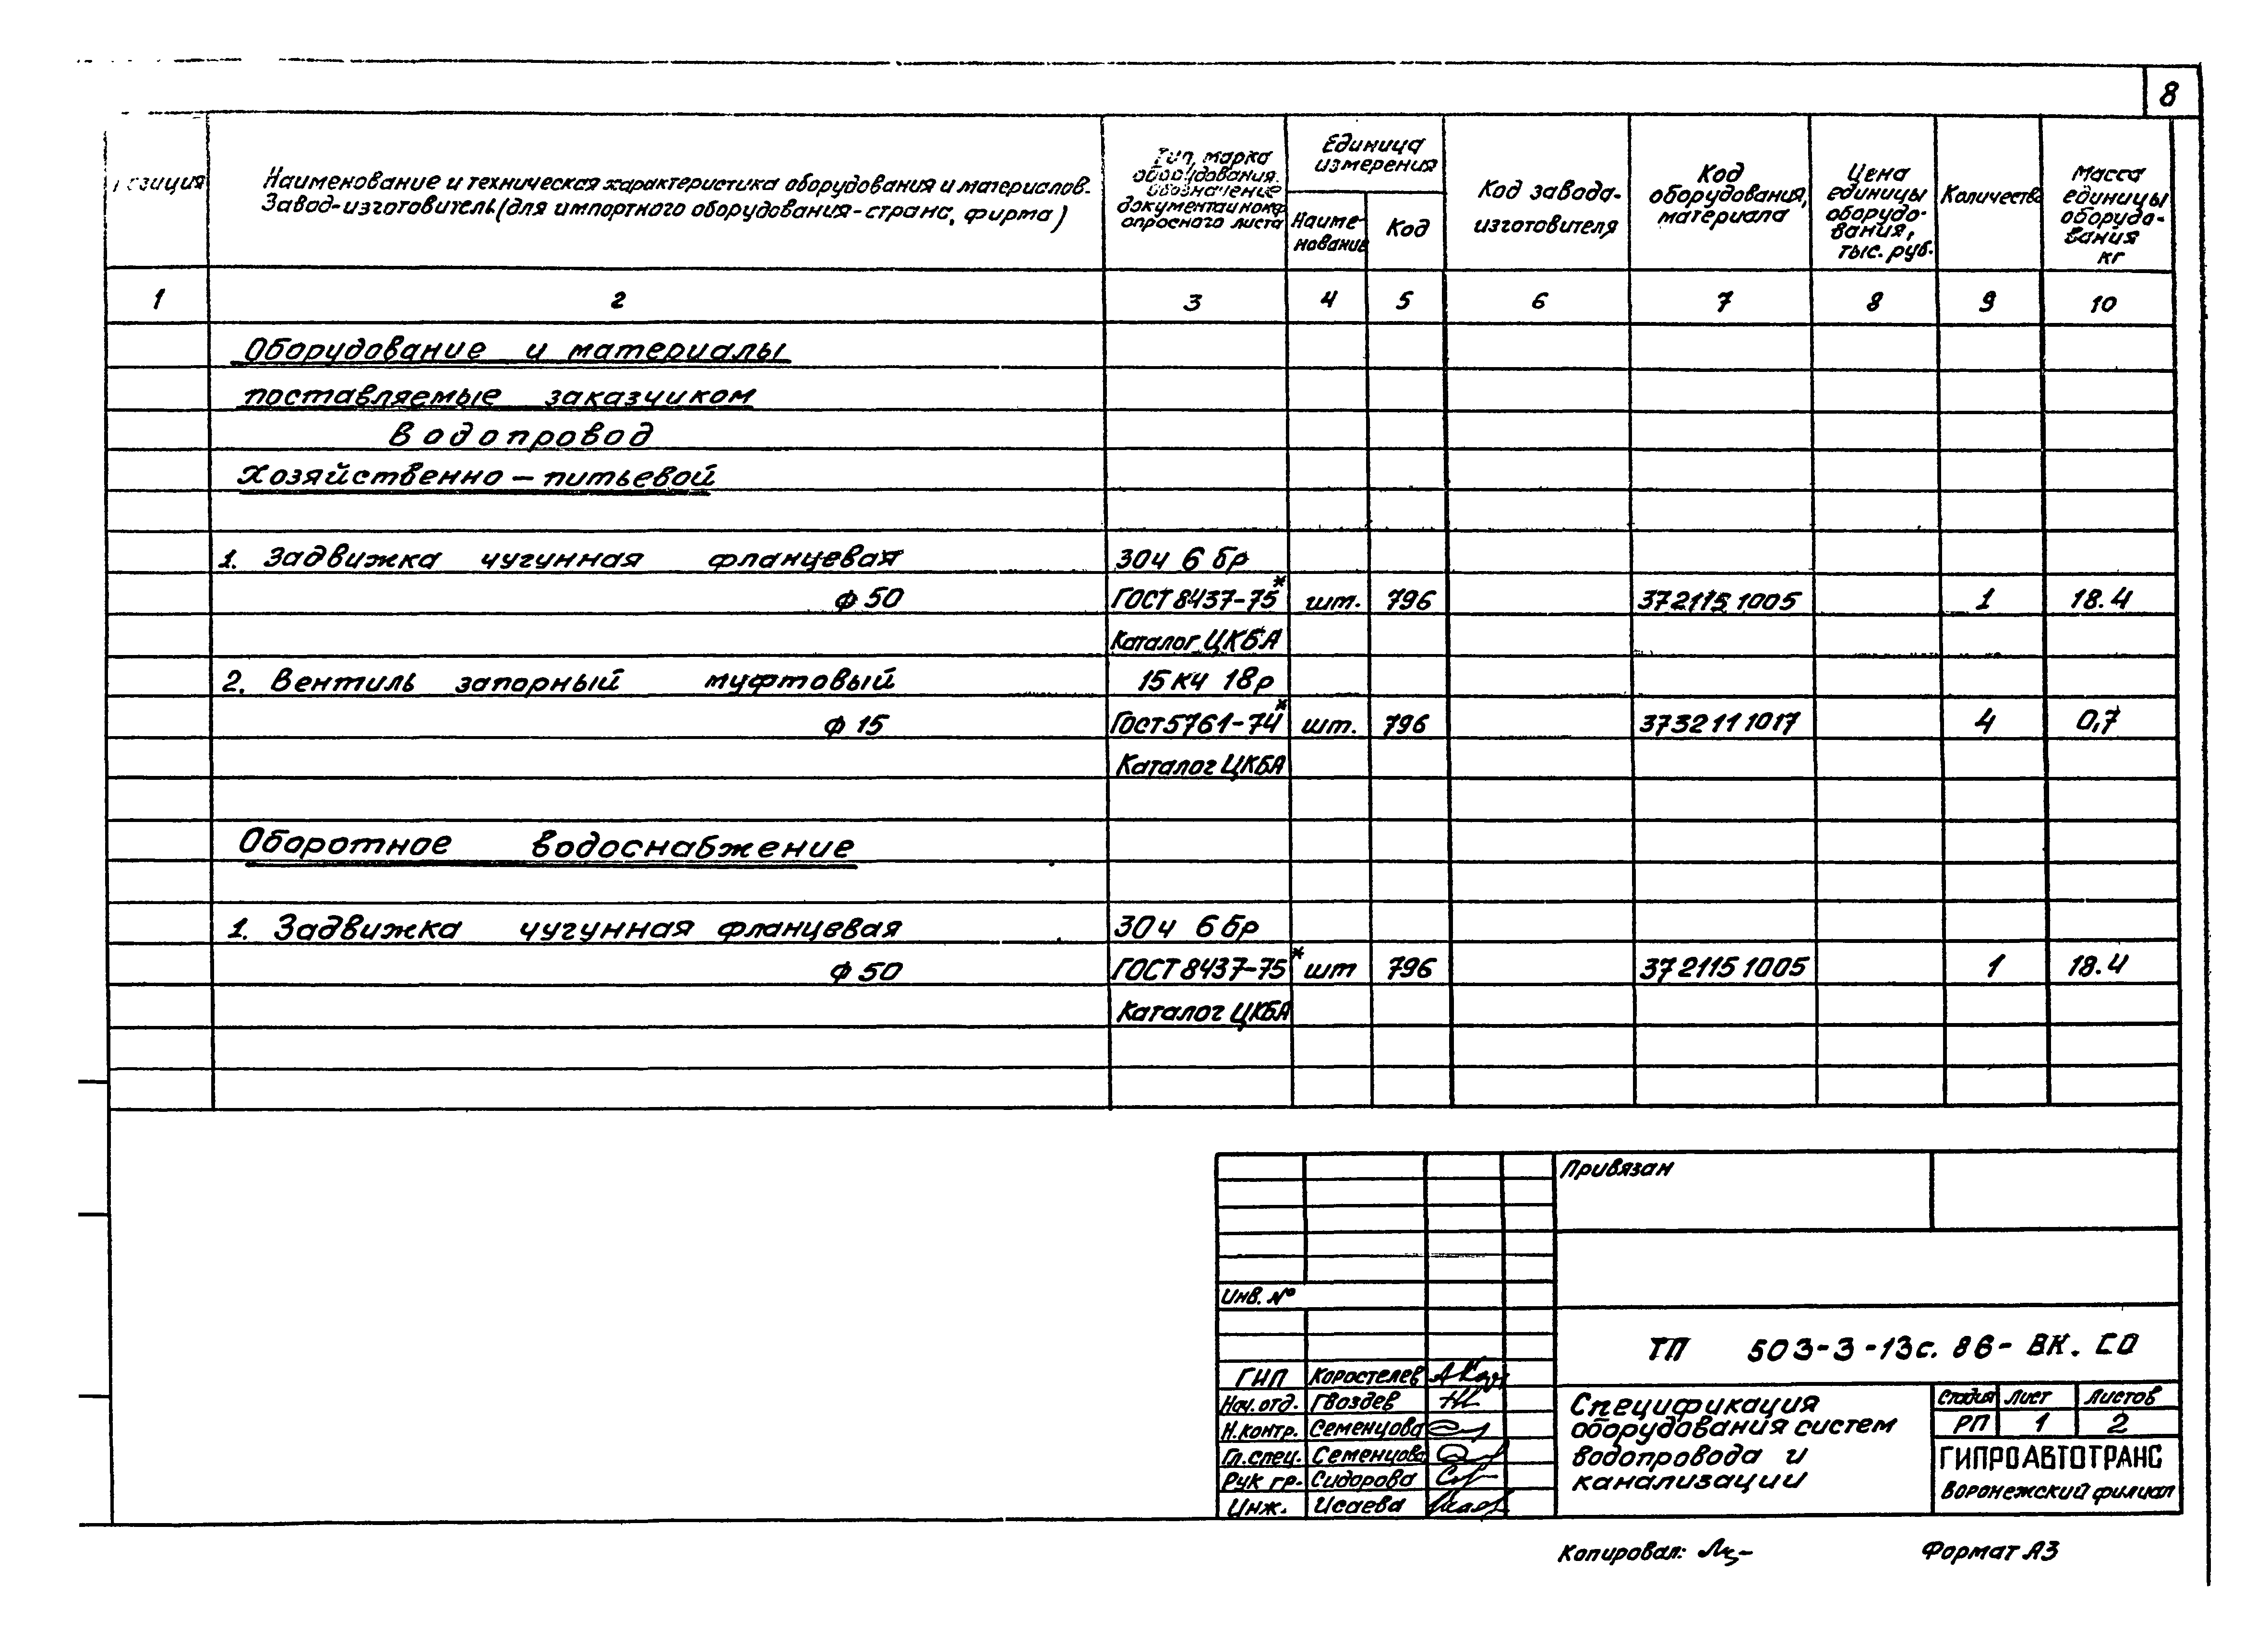 8
Позиция
Наименование и техническая характеристика оборудования и материалов.
Завод-изготовитель (для импортного оборудования - страна, фирма)
Тип, марка
оборудования.
обозначение
документа и номер
опросного листа
Единица
измерения
Наиме-
нование
Код
Код завода-
изготовителя
Код
оборудования,
материала
Цена
единицы
оборудо-
вания,
тыс. руб.
Количество
Масса
единицы
оборудо-
вания
кг
1 2 3 4 5 6 7 8 9 10
Оборудование и материалы
поставляемые заказчиком
Водопровод
Хозяйственно - питьевой
1. Задвижка чугунная фланцевая 30ч 6 бр
ф 50 ГОСТ 8437-75* шт. 796 3721151005 1 18.4
Каталог ЦКБА
2. Вентиль запорный муфтовый 15кч 18р
ф 15 Гост 5761-74* шт. 796 3732111017 4 0,7
Каталог ЦКБА
Оборотное водоснабжение
1. Задвижка чугунная фланцевая 30ч 6бр
ф 50 ГОСТ 8437-75* шт 796 3721151005 1 18.4
Каталог ЦКБА
Привязан
Инв. №
ТП 503-3-13с. 86- ВК. СО
ГИП Коростелев
Нач. отд. Гвоздев
Н.контр. Семенцова
Гл. спец. Семенцова
Рук гр. Сидорова
Инж. Исаева
Спецификация
оборудования систем
водопровода и
канализации
Стадия Лист Листов
РП 1 2
ГИПРОАВТОТРАНС
Воронежский филиал
Копировал:
Формат А3